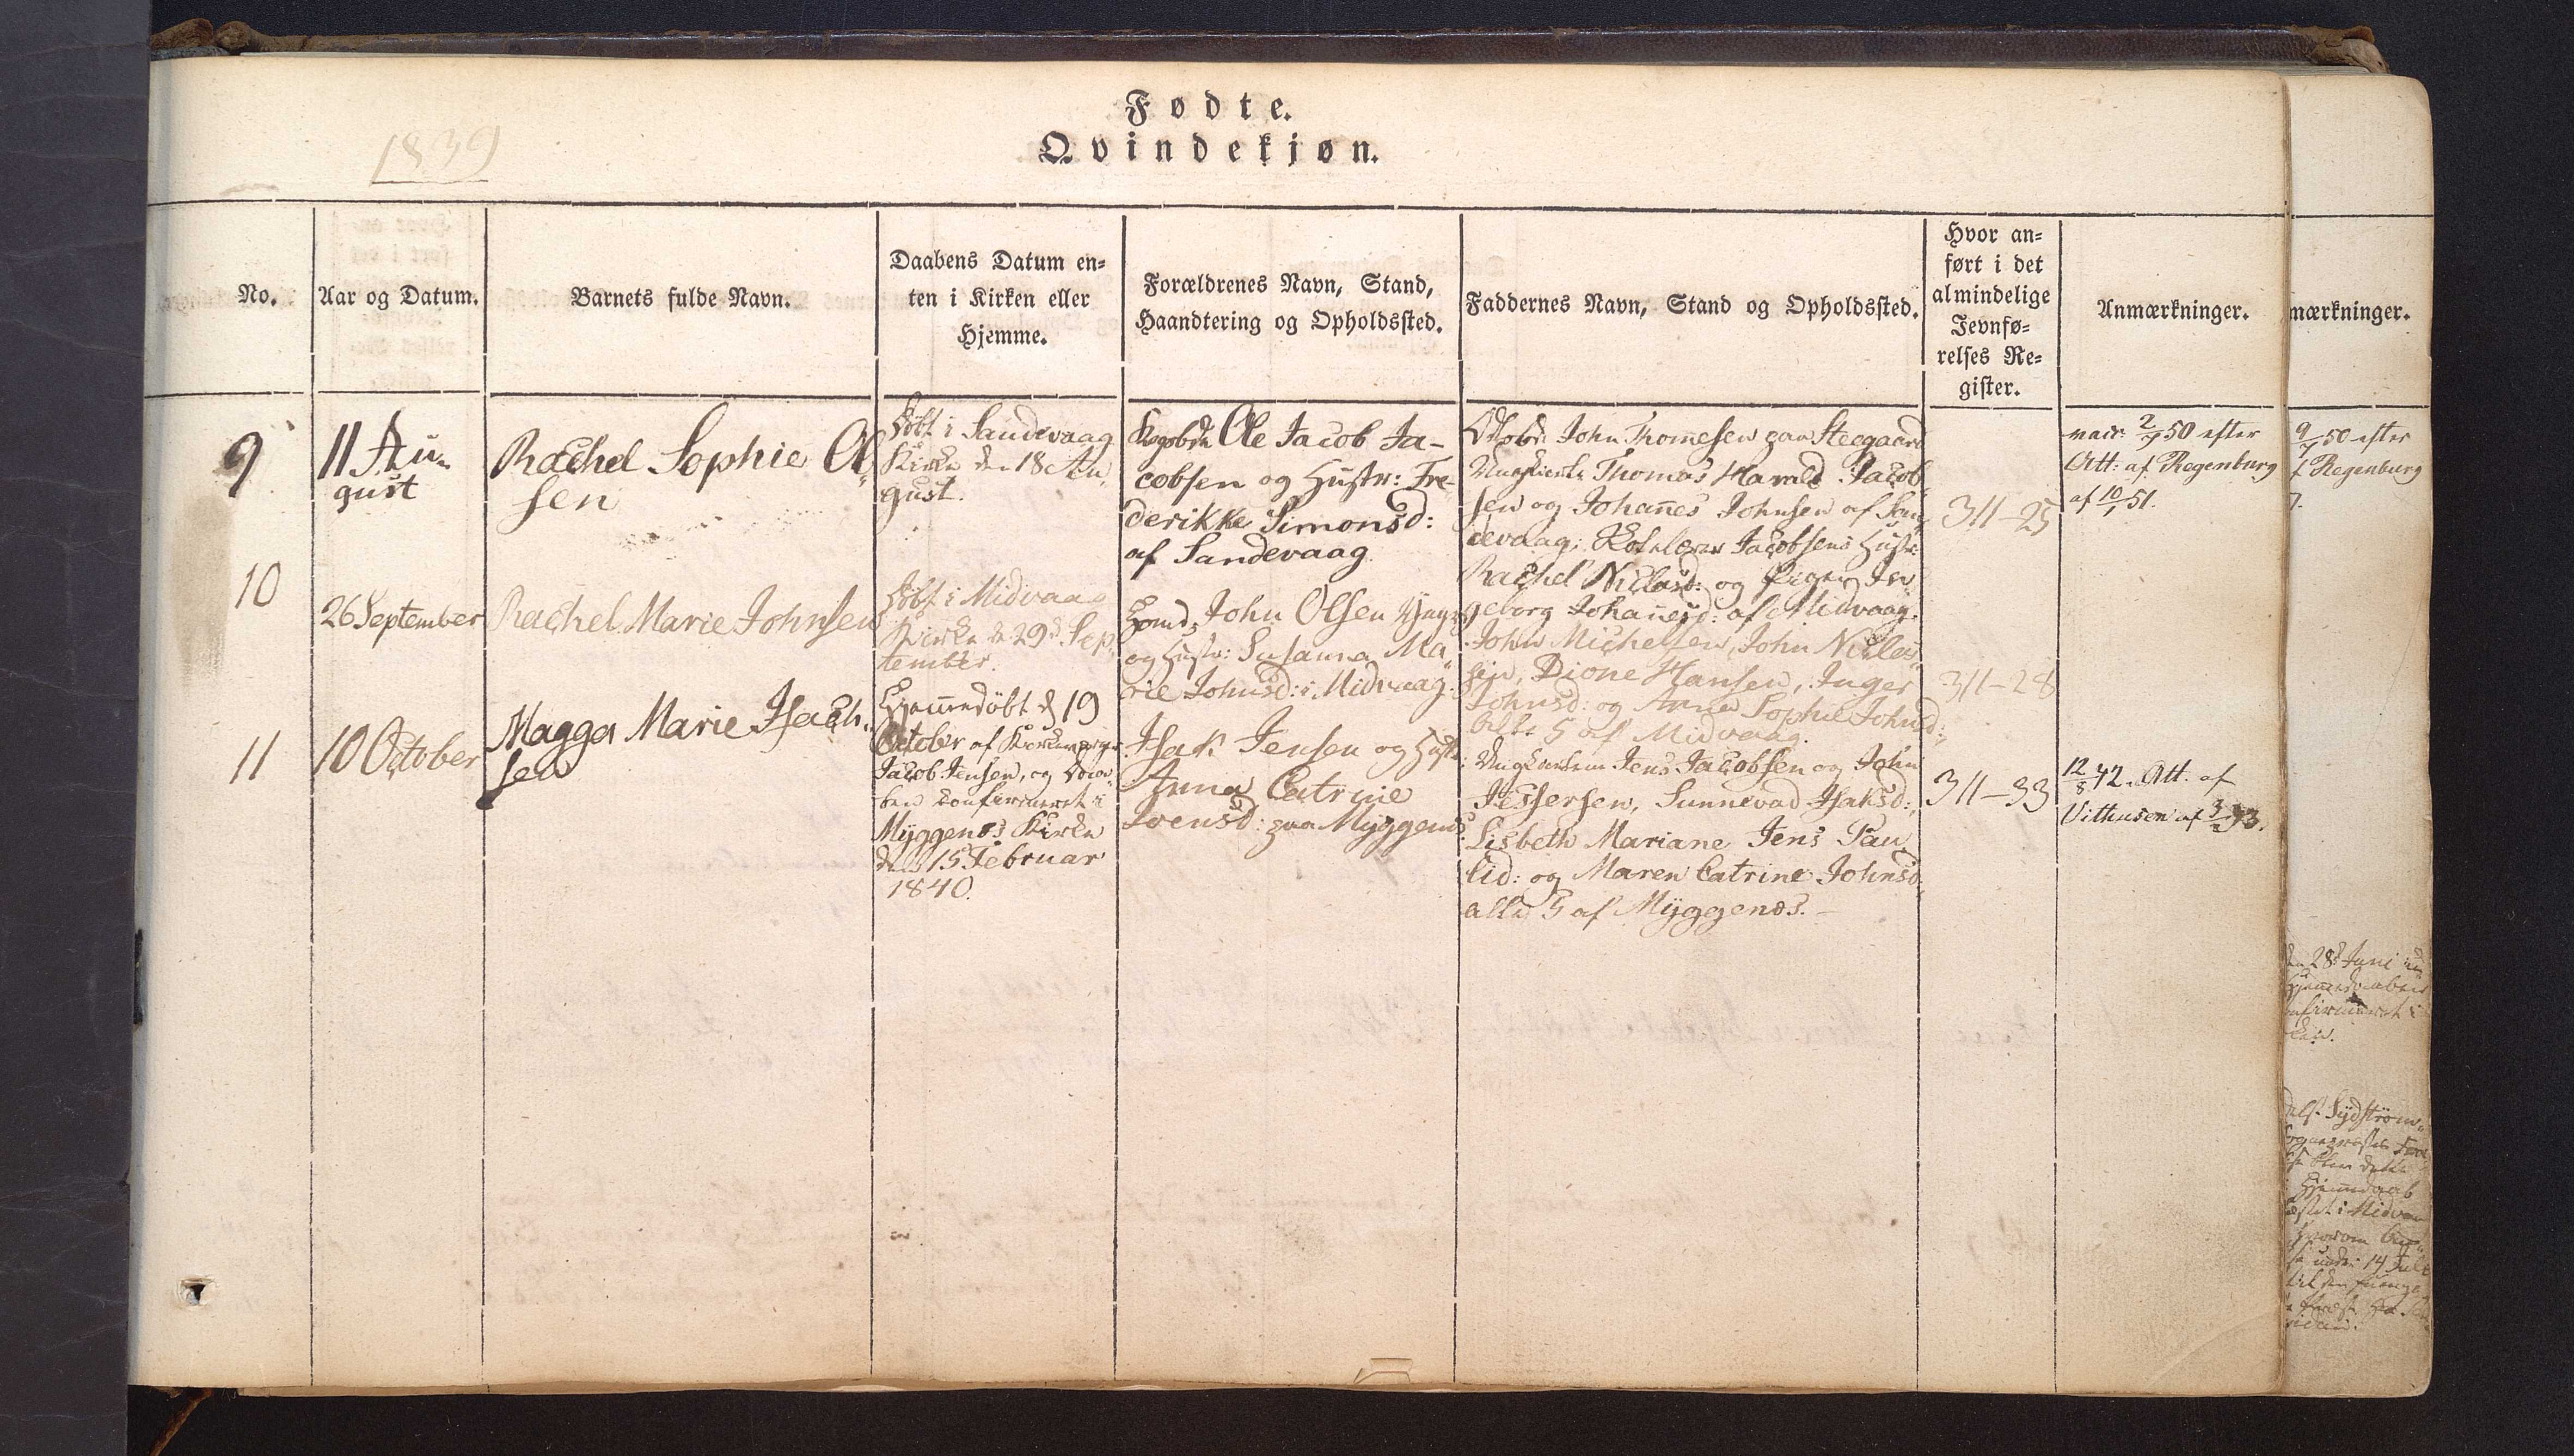 1839
Fødte.
Qvindekjøn.
No.
Aar og Datum.
Barnets fulde Navn.
Daabens Datum en-
ten i Kirken eller
Hjemme.
Forældrenes Navn, Stand,
Haandtering og Opholdssted.
Faddernes Navn, Stand og Opholdssted.
Hvor an-
ført i det
almindelige
Jevnfø-
relses Re-
gister.
Anmærkninger.
mærkninger.
9
11 Au-
gust
Rachel Sophie Ol
sen
Døbt i Sandevaag
Kirke den 18 Au
gust.
Ole Jacob Ja-
cobsen og Hustr: Fre-
derikke Simonsd:
af Sandevaag
John Thomesen paa Steegaard
Thomas Harald Jacob
sen og Johan̄es Johnsen af San
devaag, Jacobsens Hustr:
Rachel Niclasd: og Pigen In
geborg Johan̄esd: af Midvaag.
311-25
vacc: 2/7 50 efter
Att: af Regenburg
af 10/1 51.
9/7 50 efter
f Regenburg
10
26 September
Rachel Marie Johnsen
Døbt i Midvaag
Kirke d 29d. Sep
tember.
John Olsen
og Hustr: Susanna Ma
rie Johnsd: i Midvaag.
John Michelsen, John Niclas
sen, Dione Hansen, Inger
Johnsd: og Anna Sophie Johnsd:
alle 5 af Midvaag.
311-28
11
10 October
Magga Marie Isach
sen
Hjem̄edøbt d 19
October af
Jacob Jensen, og
ben confirmeret i
Myggenæs Kirke
den 15 Februar
1840.
Isak Jensen og Hustr:
Anna Catrine
Ivensd: paa Myggenæs
Ungkarlene Jens Jacobsen og John
Jessersen, Sunnevad Isaksd:,
Lisbeth Mariane Jens Pau
lid: og Maren Catrine Johnsd.
alle 5 af Myggenæs.
311-33
12/8 42. Att. af
af 3/2 93.
28d Juni
Sydstrøm
i Midvaa
14 Juli